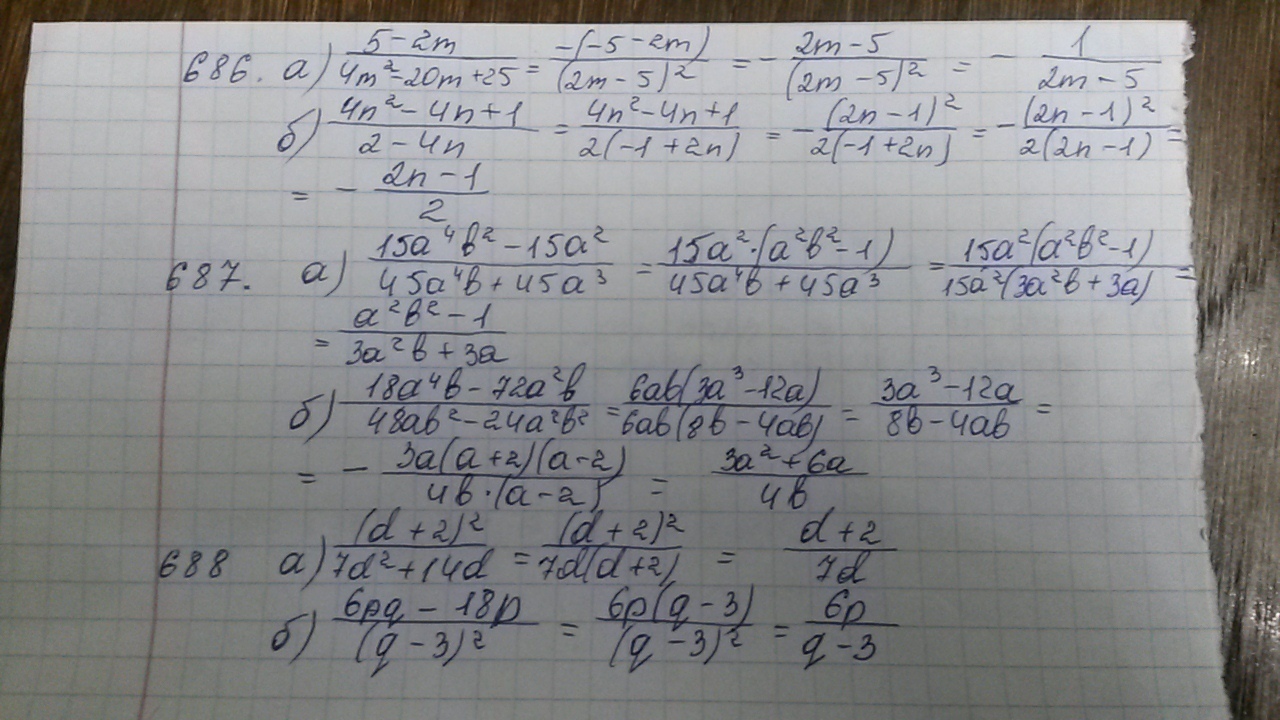 686. а) (5-2m)/(4m²-20m+25) = (-(-5-2m))/((2m-5)²) = - (2m-5)/((2m-5)²) = - 1/(2m-5)
б) (4n²-4n+1)/(2-4n) = (4n²-4n+1)/(2(-1+2n)) = - ((2n-1)²)/(2(-1+2n)) = - ((2n-1)²)/(2(2n-1)) =
= - (2n-1)/2
687. а) (15a⁴b²-15a²)/(45a⁴b+45a³) = (15a²·(a²b²-1))/(45a⁴b+45a³) = (15a²(a²b²-1))/(15a²(3a²b+3a)) =
= (a²b²-1)/(3a²b+3a)
б) (18a⁴b-72a²b)/(48ab²-24a²b²) = (6ab(3a³-12a))/(6ab(8b-4ab)) = (3a³-12a)/(8b-4ab) =
= - (3a(a+2)(a-2))/(4b·(a-2)) = (3a²+6a)/(4b)
688 а) ((d+2)²)/(7d²+14d) = ((d+2)²)/(7d(d+2)) = (d+2)/(7d)
б) (6pq-18p)/((q-3)²) = (6p(q-3))/((q-3)²) = (6p)/(q-3)